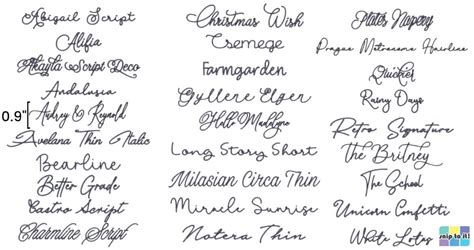 Abigail Script
Alifia
Akayla Script Deco
Andalusia
0.9"
Audrey & Reynold
Avelana Thin Italic
Bearline
Better Grade
Castro Script
Charmline Script
Christmas Wish
Csemege
Farmgarden
Gyllere Elger
Hello Madelyne
Long Story Short
Milasian Circa Thin
Miracle Sunrise
Notera Thin
Plates Napery
Prague Metronome Hairline
Quicker
Rainy Days
Retro Signature
The Britney
The School
Unicorn Confetti
White Lotus
snip to it!